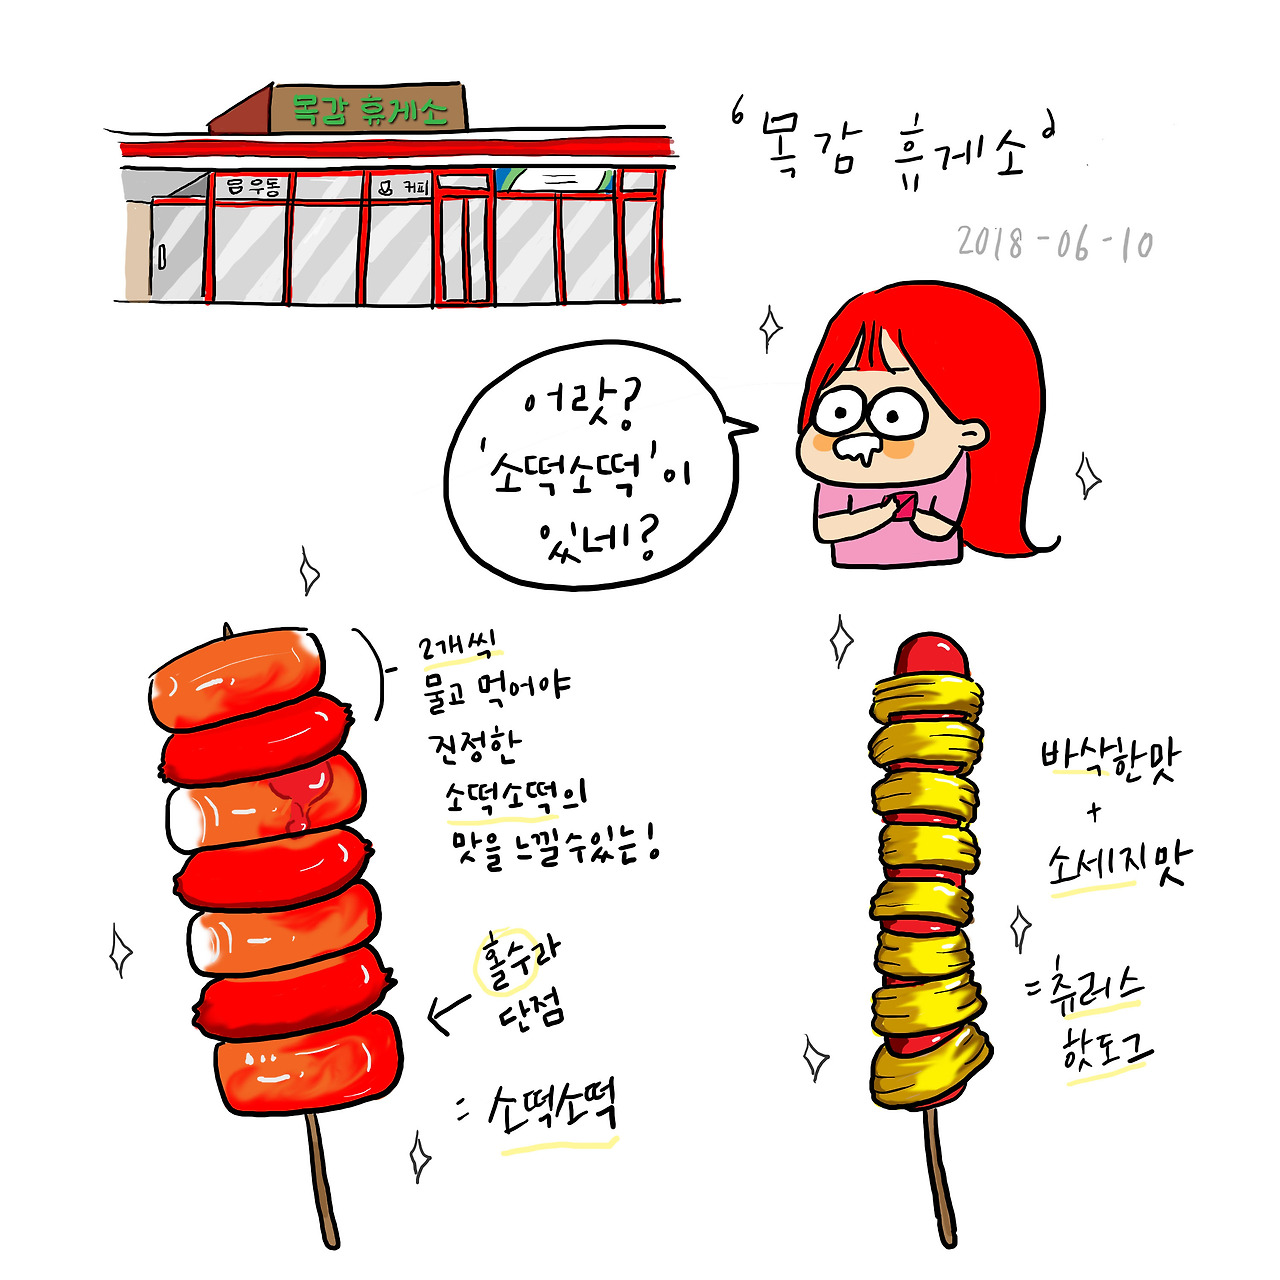 목감 휴게소
우동
커피
'목감 휴게소'
2018-06-10
어랏?
'소떡소떡'이
있네?
2개씩
물고 먹어야
진정한
소떡소떡의
맛을 느낄수있는!
홀수라
단점
= 소떡소떡
바삭한맛
+
소세지맛
= 츄러스
핫도그